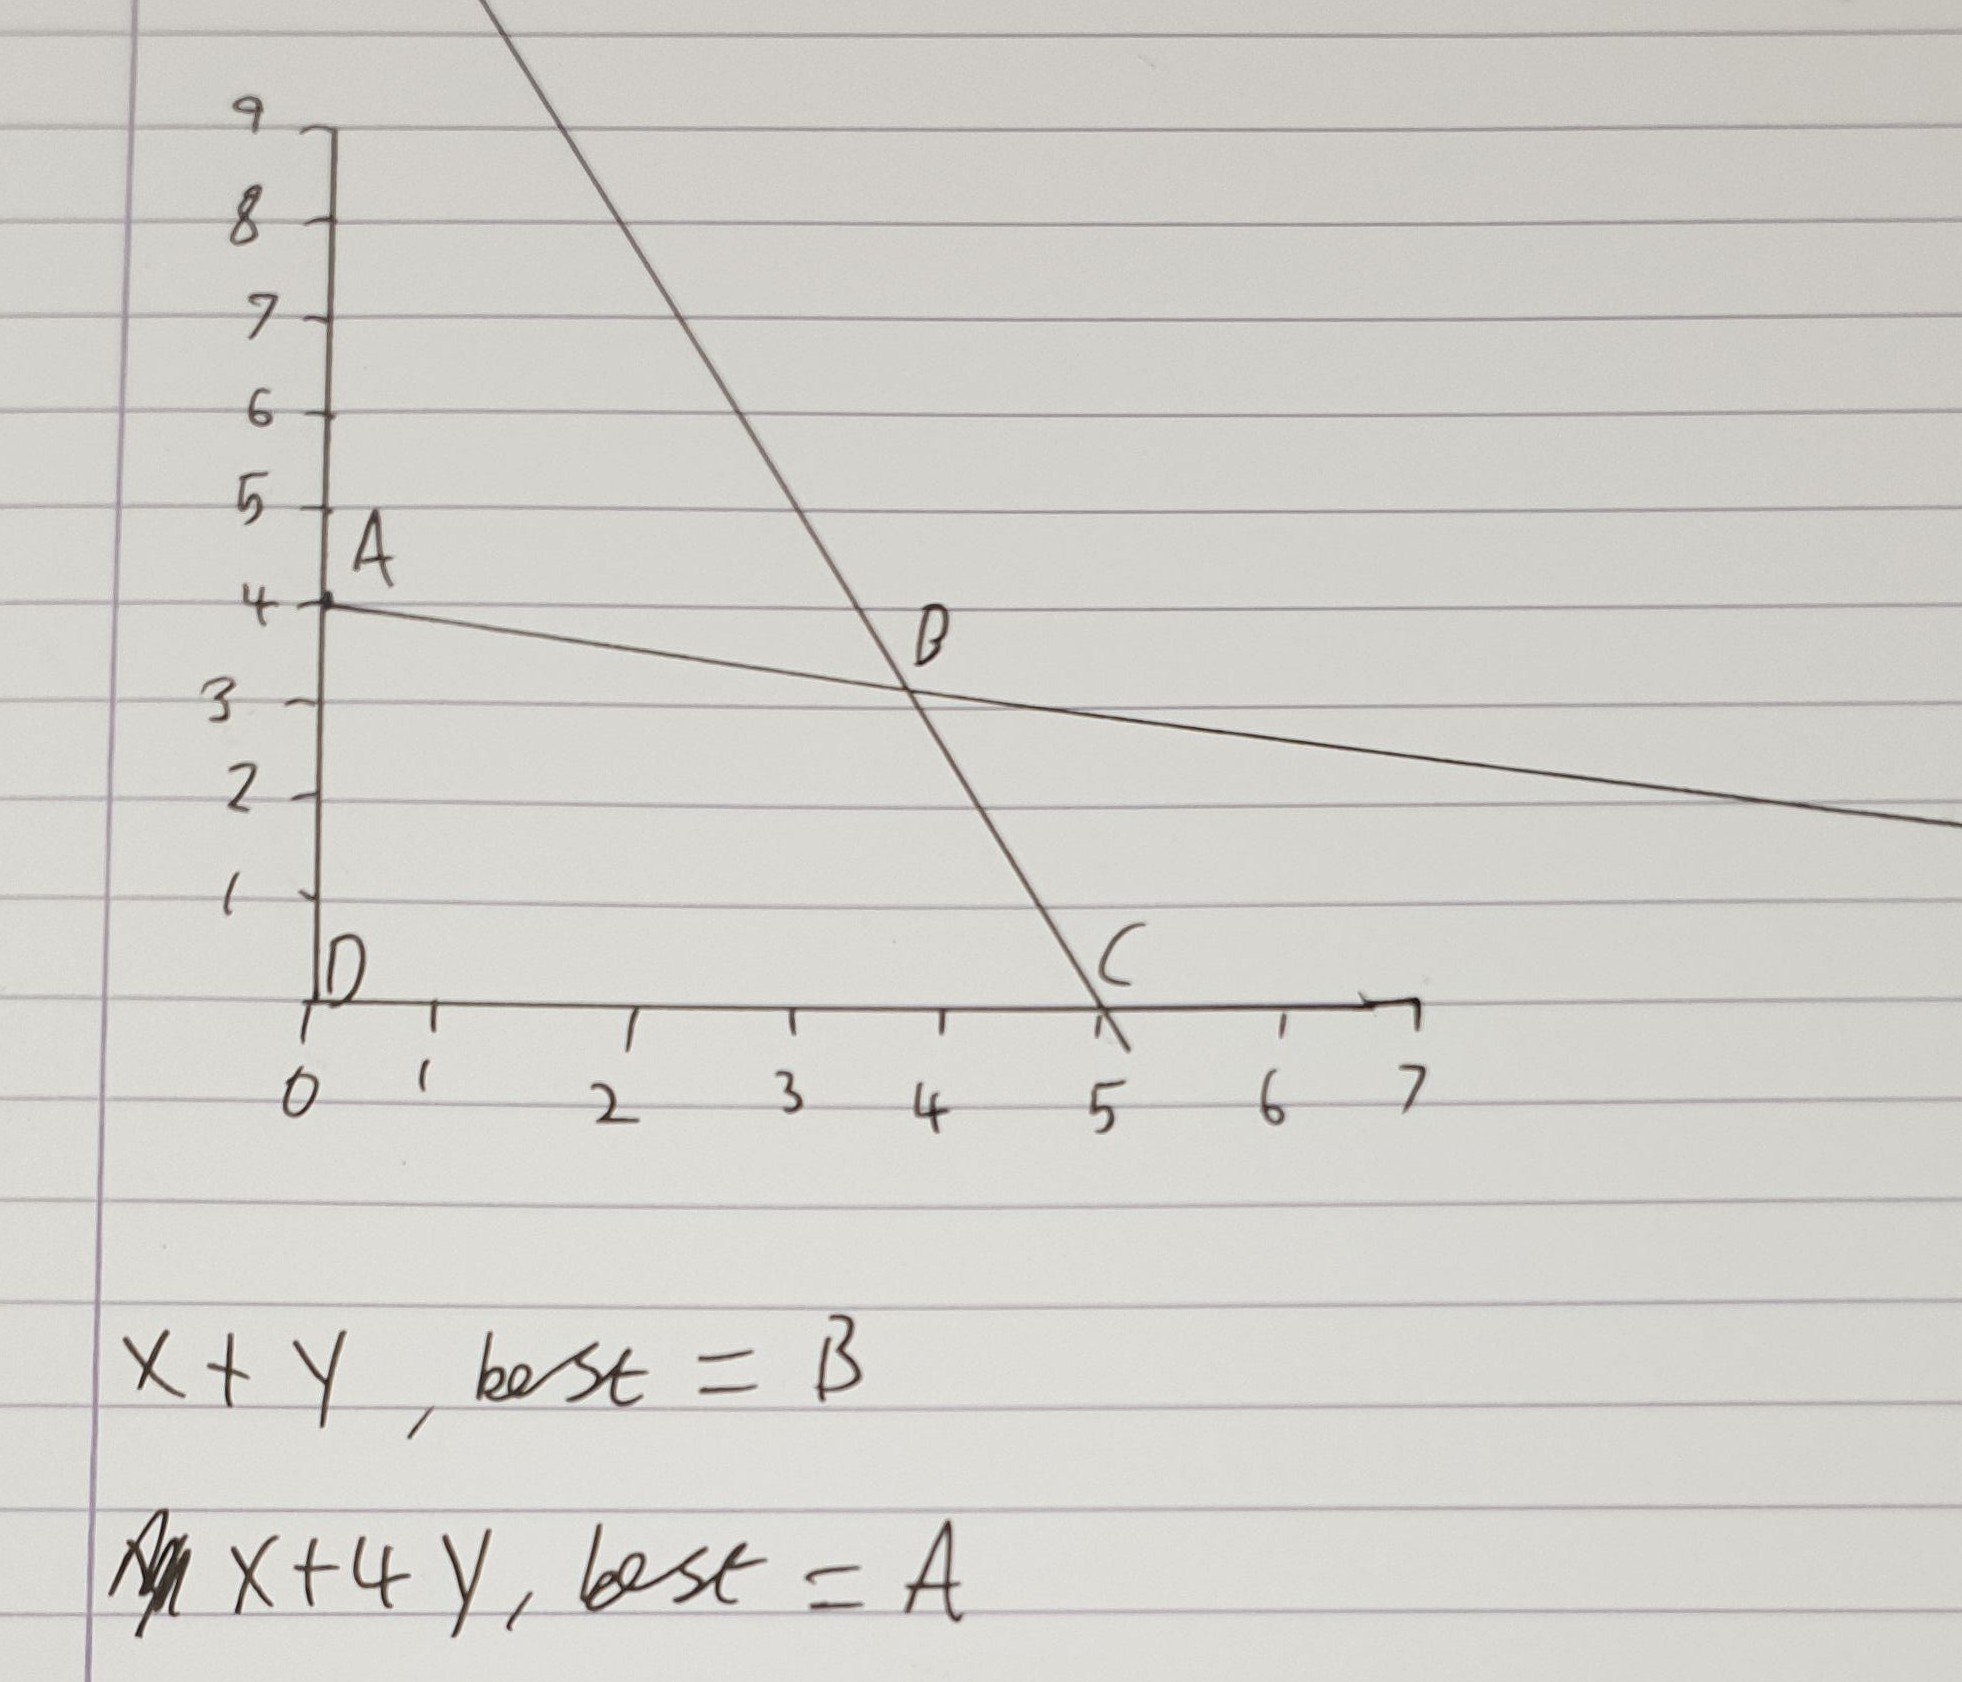 9
8
7
6
5
A
4
B
3
2
1
D
C
0 1 2 3 4 5 6 7
X + Y, best = B
X + 4 Y, best = A